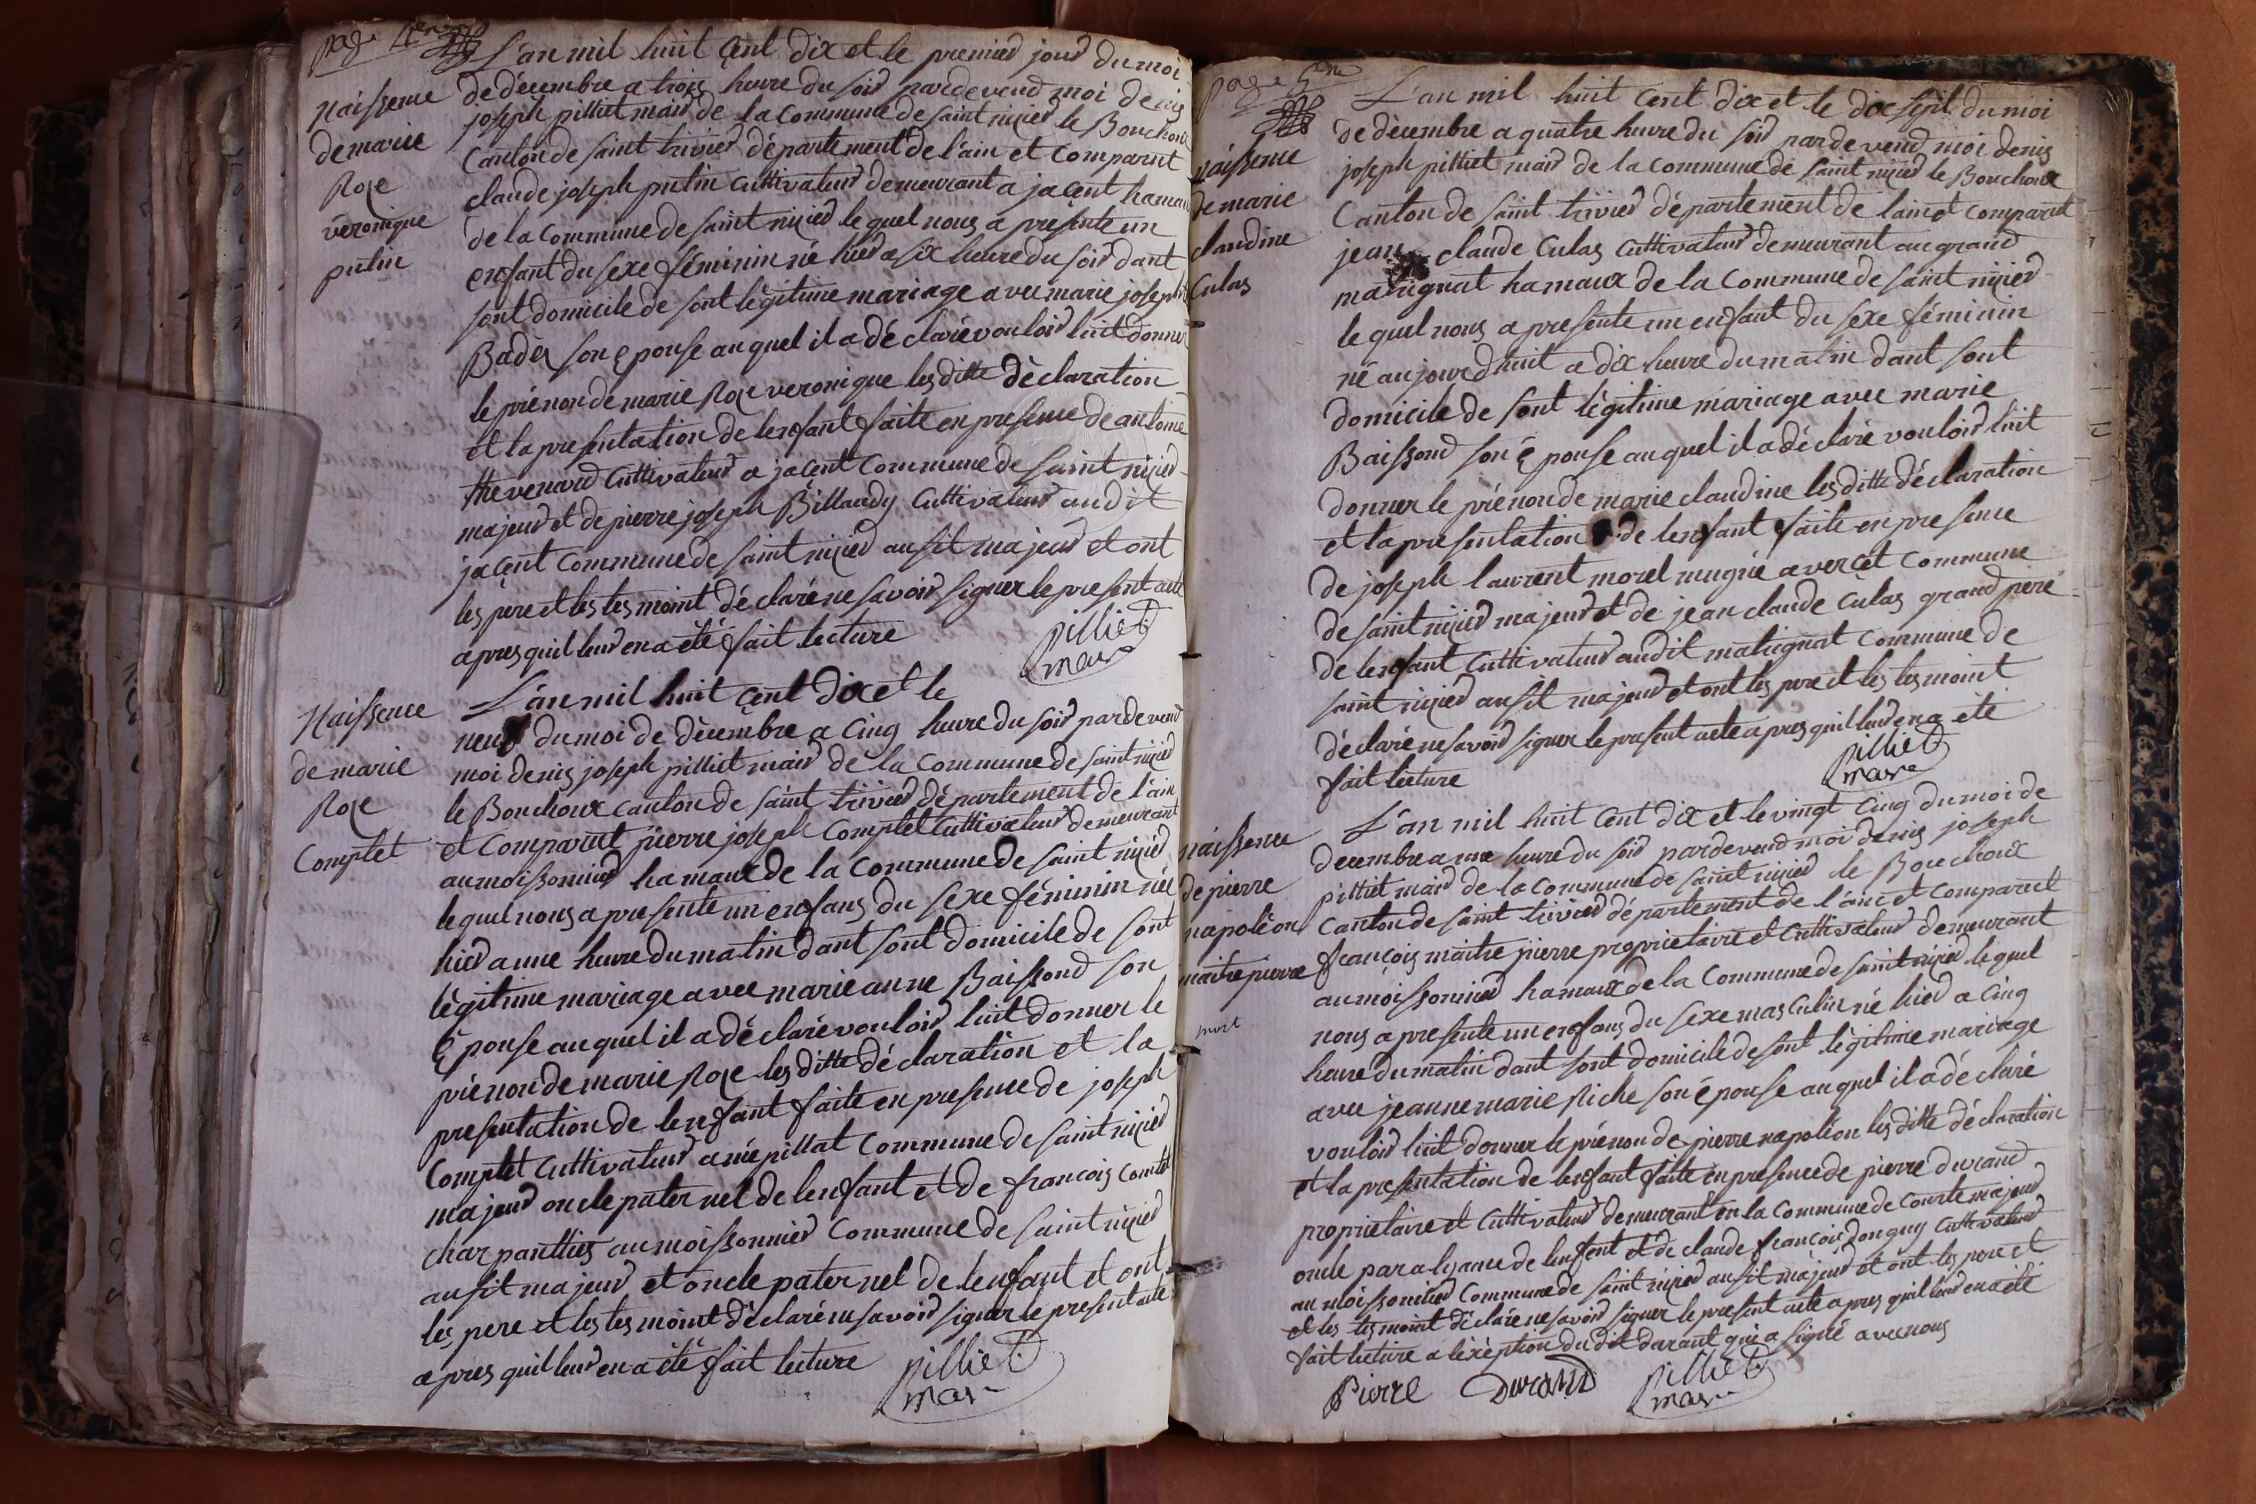 page 4eme
Naissence
de marie
Roze
véronique
putin
L'an mil huit Cent dix et le premier jour du moi
de décembre a trois heure du soir pardevend moi denis
joseph pilliet mair de la Commune de saint nizier le Bouchoux
Canton de saint trivier département de l'ain et Comparut
claude joseph putin Cultivateur demeurant a jacent hamau
de la Commune de saint nizier le quel nous a présenté un
enfant du sexe féminin né hier a six heure du soir dant
sont domicile de sont légitime mariage avec marie joseph
Badez son épouse au quel il a déclaré vouloir luit donner
le prénon de marie Roze veronique lesditte déclaration
et la presentation de lenfant faite en presence de antoine
thevenard Cultivateur a jacent Commune de saint nizier
majeur et de pierre joseph Billaudy Cultivateur audit
jacent Commune de saint nizier ausit majeur et ont
les pere et les tesmoint déclaré ne savoir signer le present acte
apres quil leur en a été fait lecture
pilliet
maire
Naissence
de marie
Roze
Complet
L'an mil huit Cent dix et le
neuf du moi de décembre a Cinq heure du soir pardevend
moi denis joseph pilliet mair de la Commune de saint nizier
le Bouchoux canton de saint trivier département de l'ain
et Comparut pierre joseph Complet Cultivateur demeurant
au moissonnier hamaux de la Commune de saint nizier
le quel nous a presente un enfans du sexe féminin née
hier a une heure du matin dant sont domicile de sont
légitime mariage avec marie anne Baissond son
Épouse au quel il a déclaré vouloir luit donner le
prénon de marie Roze lesditte déclaration et la
presentation de lenfant faite en presence de joseph
Complet Cultivateur a népillat Commune de saint nizier
majeur oncle paternel de lenfant et de francois Comtet
charpanttier au moissonnier Commune de saint nizier
ausit majeur et oncle paternel de lenfant et ont
les pere et les tesmoint déclaré ne savoir signer le present acte
apres quil leur en a été fait lecture
pilliet
maire
page 5me
naissence
de marie
claudine
Culas
L'an mil huit Cent dix et le dix sept du moi
de décembre a quatre heure du soir pardevend moi denis
joseph pilliet mair de la Commune de saint nizier le Bouchoux
Canton de saint trivier département de lain et Comparut
jean claude Culas Cultivateur demeurant au grand
matignat hamaux de la Commune de saint nizier
le quel nous a presente un enfant du sexe féminin
né aujourdhuit a dix heure du matin dant sont
domicile de sont légitime mariage avec marie
Baissond son épouse au quel il a déclaré vouloir luit
donner le prénon de marie claudine lesditte déclaration
et la presentation de lenfant faite en presence
de joseph laurent morel mugnié a vercet Commune
de saint nizier majeur et de jean claude Culas grand pere
de lenfant Cultivateur audit matignat Commune de
saint nizier ausit majeur et ont les pere et les tesmoint
déclaré ne savoir signer le present acte apres quil leur en a été
fait lecture
pilliet
maire
naissence
de pierre
napoléon
maitre pierre
mort
L'an mil huit Cent dix et le vingt Cinq du moi de
decembre a une heure du soir pardevend moi denis joseph
pilliet mair de la Commune de saint nizier le Bouchoux
Canton de saint trivier département de l'ain et Comparut
françois maitre pierre proprietaire et Cultivateur demeurant
au moissonnier hamaux de la Commune de saint nizier le quel
nous a presente un enfans du sexe masculin né hier a Cinq
heure du matin dant sont domicile de sont légitime mariage
avec jeanne marie fiche son épouse au quel il a déclaré
vouloir luit donner le prénon de pierre napoléon lesditte déclaration
et la presentation de lenfant faite en presence de pierre durand
proprietaire et Cultivateur demeurant en la Commune de Courte majeur
oncle par alyance de lenfent et de claude francois donguy Cultivateur
au moissonnier Commune de saint nizier ausit majeur et ont les pere et
et les tesmoint déclaré ne savoir signer le present acte apres quil leur en a été
fait lecture a léxéption dudit durant qui a signé avec nous
Pierre Durand pilliet
maire